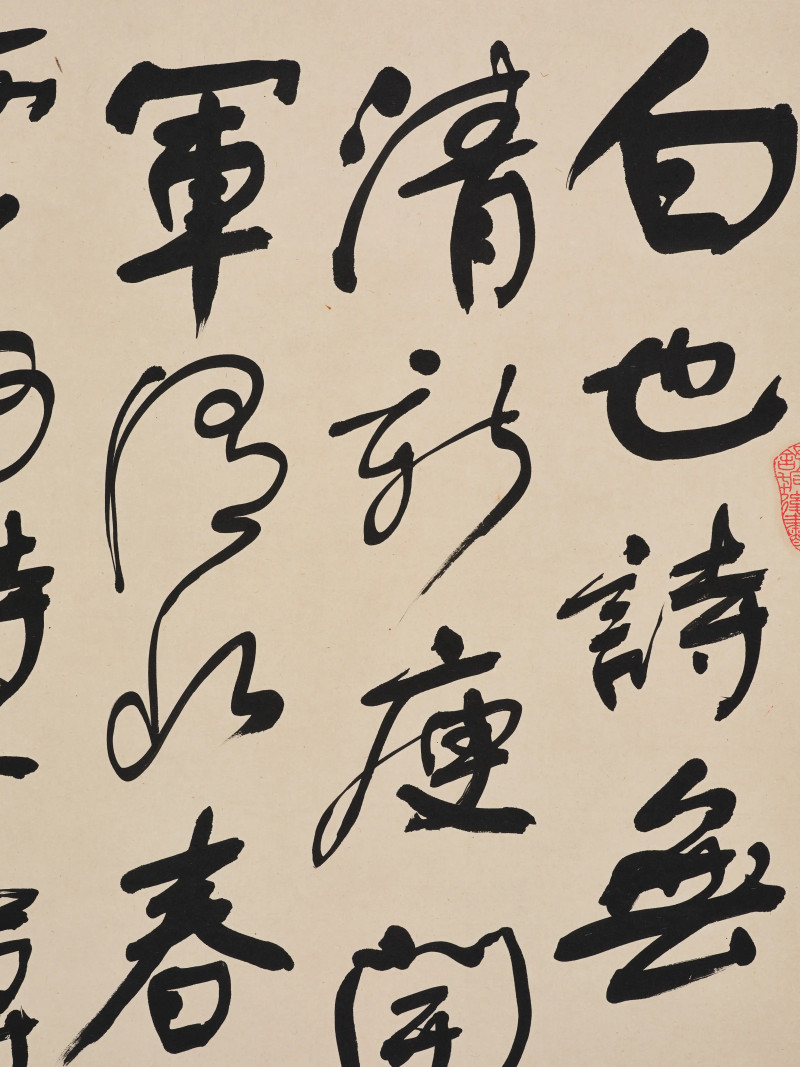 白也詩無
清新庾開
軍渭北春